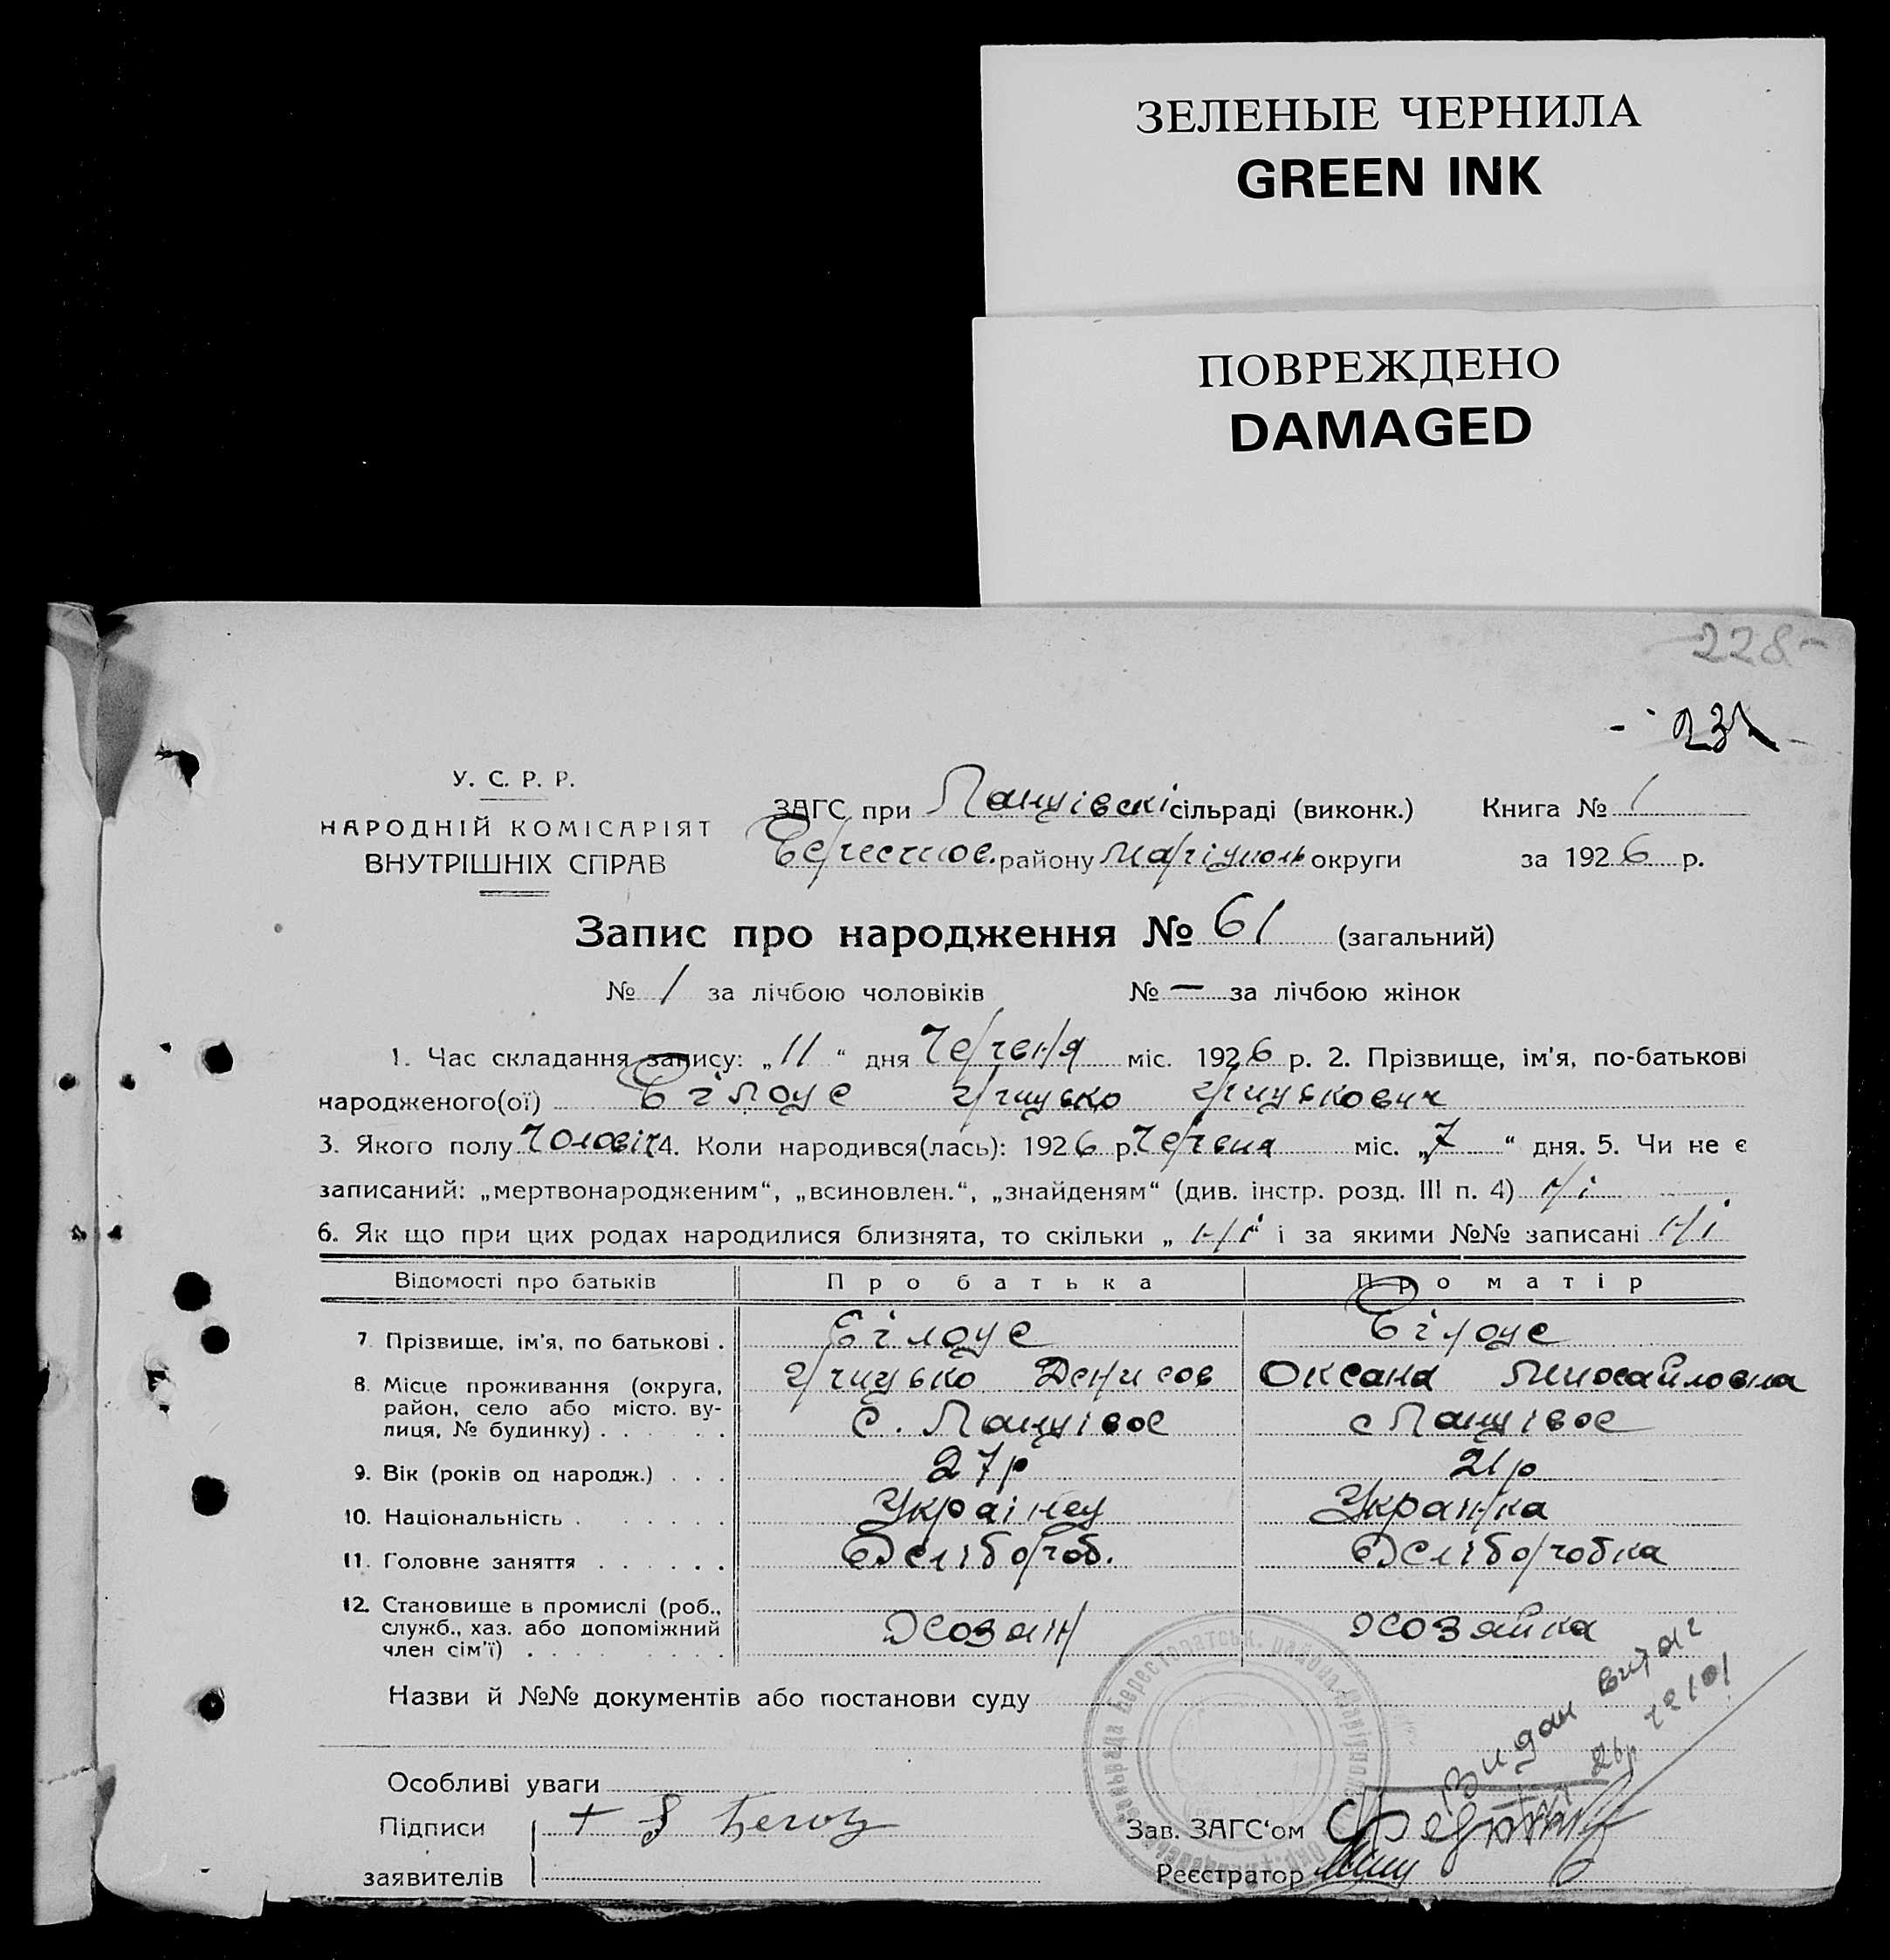 ЗЕЛЕНЫЕ ЧЕРНИЛА
GREEN INK
ПОВРЕЖДЕНО
DAMAGED
228-
У. С. Р. Р.
НАРОДНІЙ КОМІСАРІЯТ
ВНУТРІШНІХ СПРАВ
ЗАГС при Ланцівскі сільраді (виконк.) Книга № 1
району Маріуполь округи за 1926 р.
Запис про народження № 61 (загальний)
№ 1 за лічбою чоловіків № — за лічбою жінок
1. Час складання запису: „11“ дня Червня міс. 1926 р. 2. Прізвище, ім'я, по-батькові
народженого(ої) Білоус Грицько Грицькович
3. Якого полу Чоловіч 4. Коли народився(лась): 1926 р. Червня міс. „7“ дня. 5. Чи не є
записаний: „мертвонародженим“, „всиновлен.“, „знайденям“ (див. інстр. розд. III п. 4) Ні
6. Як що при цих родах народилися близнята, то скільки „Ні“ і за якими №№ записані Ні
Відомості про батьків Про батька Про матір
7. Прізвище, ім'я, по батькові . Білоус Білоус
Грицько Денисов Оксана Михайловна
8. Місце проживання (округа, район, село або місто. вулиця, № будинку) . . . . . . с. Ланцівое с Ланцівое
9. Вік (років од народж.) . . . 27р 21р
10. Національність . . . . . . Українец Українка
11. Головне заняття . . . . . . Хлібороб. Хліборобка
12. Становище в промислі (роб., служб., хаз. або допоміжний член сім'ї) . . . . . . . . Хозаін Хозайка
Назви й №№ документів або постанови суду
Видан витяг
Особливі уваги
Підписи
заявителів
+
Зав. ЗАГС'ом
Реєстратор